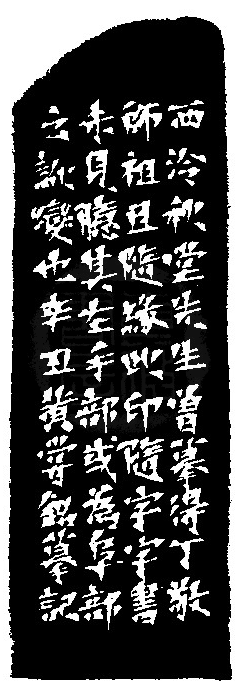 西泠秋堂先生曾摹得丁敬
師祖且隨緣此印隨字字書
未見臆其左手部或為阜部
之訛變也辛丑黃嘗銘摹記